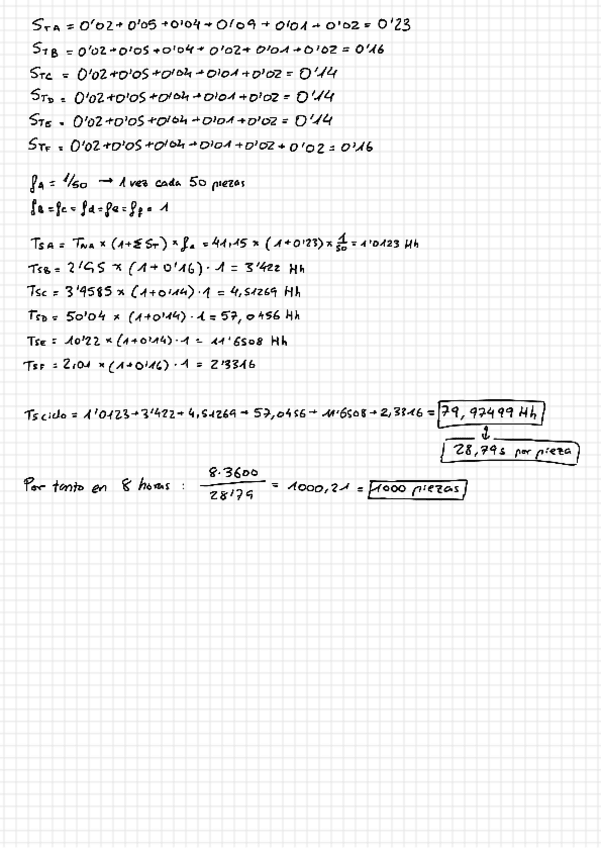 STA = 0'02 + 0'05 + 0'04 + 0'09 + 0'01 + 0'02 = 0'23
STB = 0'02 + 0'05 + 0'04 + 0'02 + 0'01 + 0'02 = 0'16
STC = 0'02 + 0'05 + 0'04 + 0'01 + 0'02 = 0'14
STD = 0'02 + 0'05 + 0'04 + 0'01 + 0'02 = 0'14
STE = 0'02 + 0'05 + 0'04 + 0'01 + 0'02 = 0'14
STF = 0'02 + 0'05 + 0'04 + 0'01 + 0'02 + 0'02 = 0'16
fA = 1/50 → 1 vez cada 50 piezas
fB = fc = fd = fe = fF = 1
TSA = TNA × (1+ΣST) × fA = 41,15 × (1+0'23) × 1/50 = 1'0123 Hh
TSB = 2'95 × (1+0'16) · 1 = 3'422 Hh
TSC = 3'9585 × (1+0'14) · 1 = 4,51269 Hh
TSD = 50'04 × (1+0'14) · 1 = 57,0456 Hh
TSE = 10'22 × (1+0'14) · 1 = 11'6508 Hh
TSF = 2,01 × (1+0'16) · 1 = 2'3316
Ts ciclo = 1'0123 + 3'422 + 4,51269 + 57,0456 + 11'6508 + 2,3316 = 79,97499 Hh
↓
28,79s por pieza
Por tanto en 8 horas : 8·3600 / 28'79 = 1000,21 = 1000 piezas